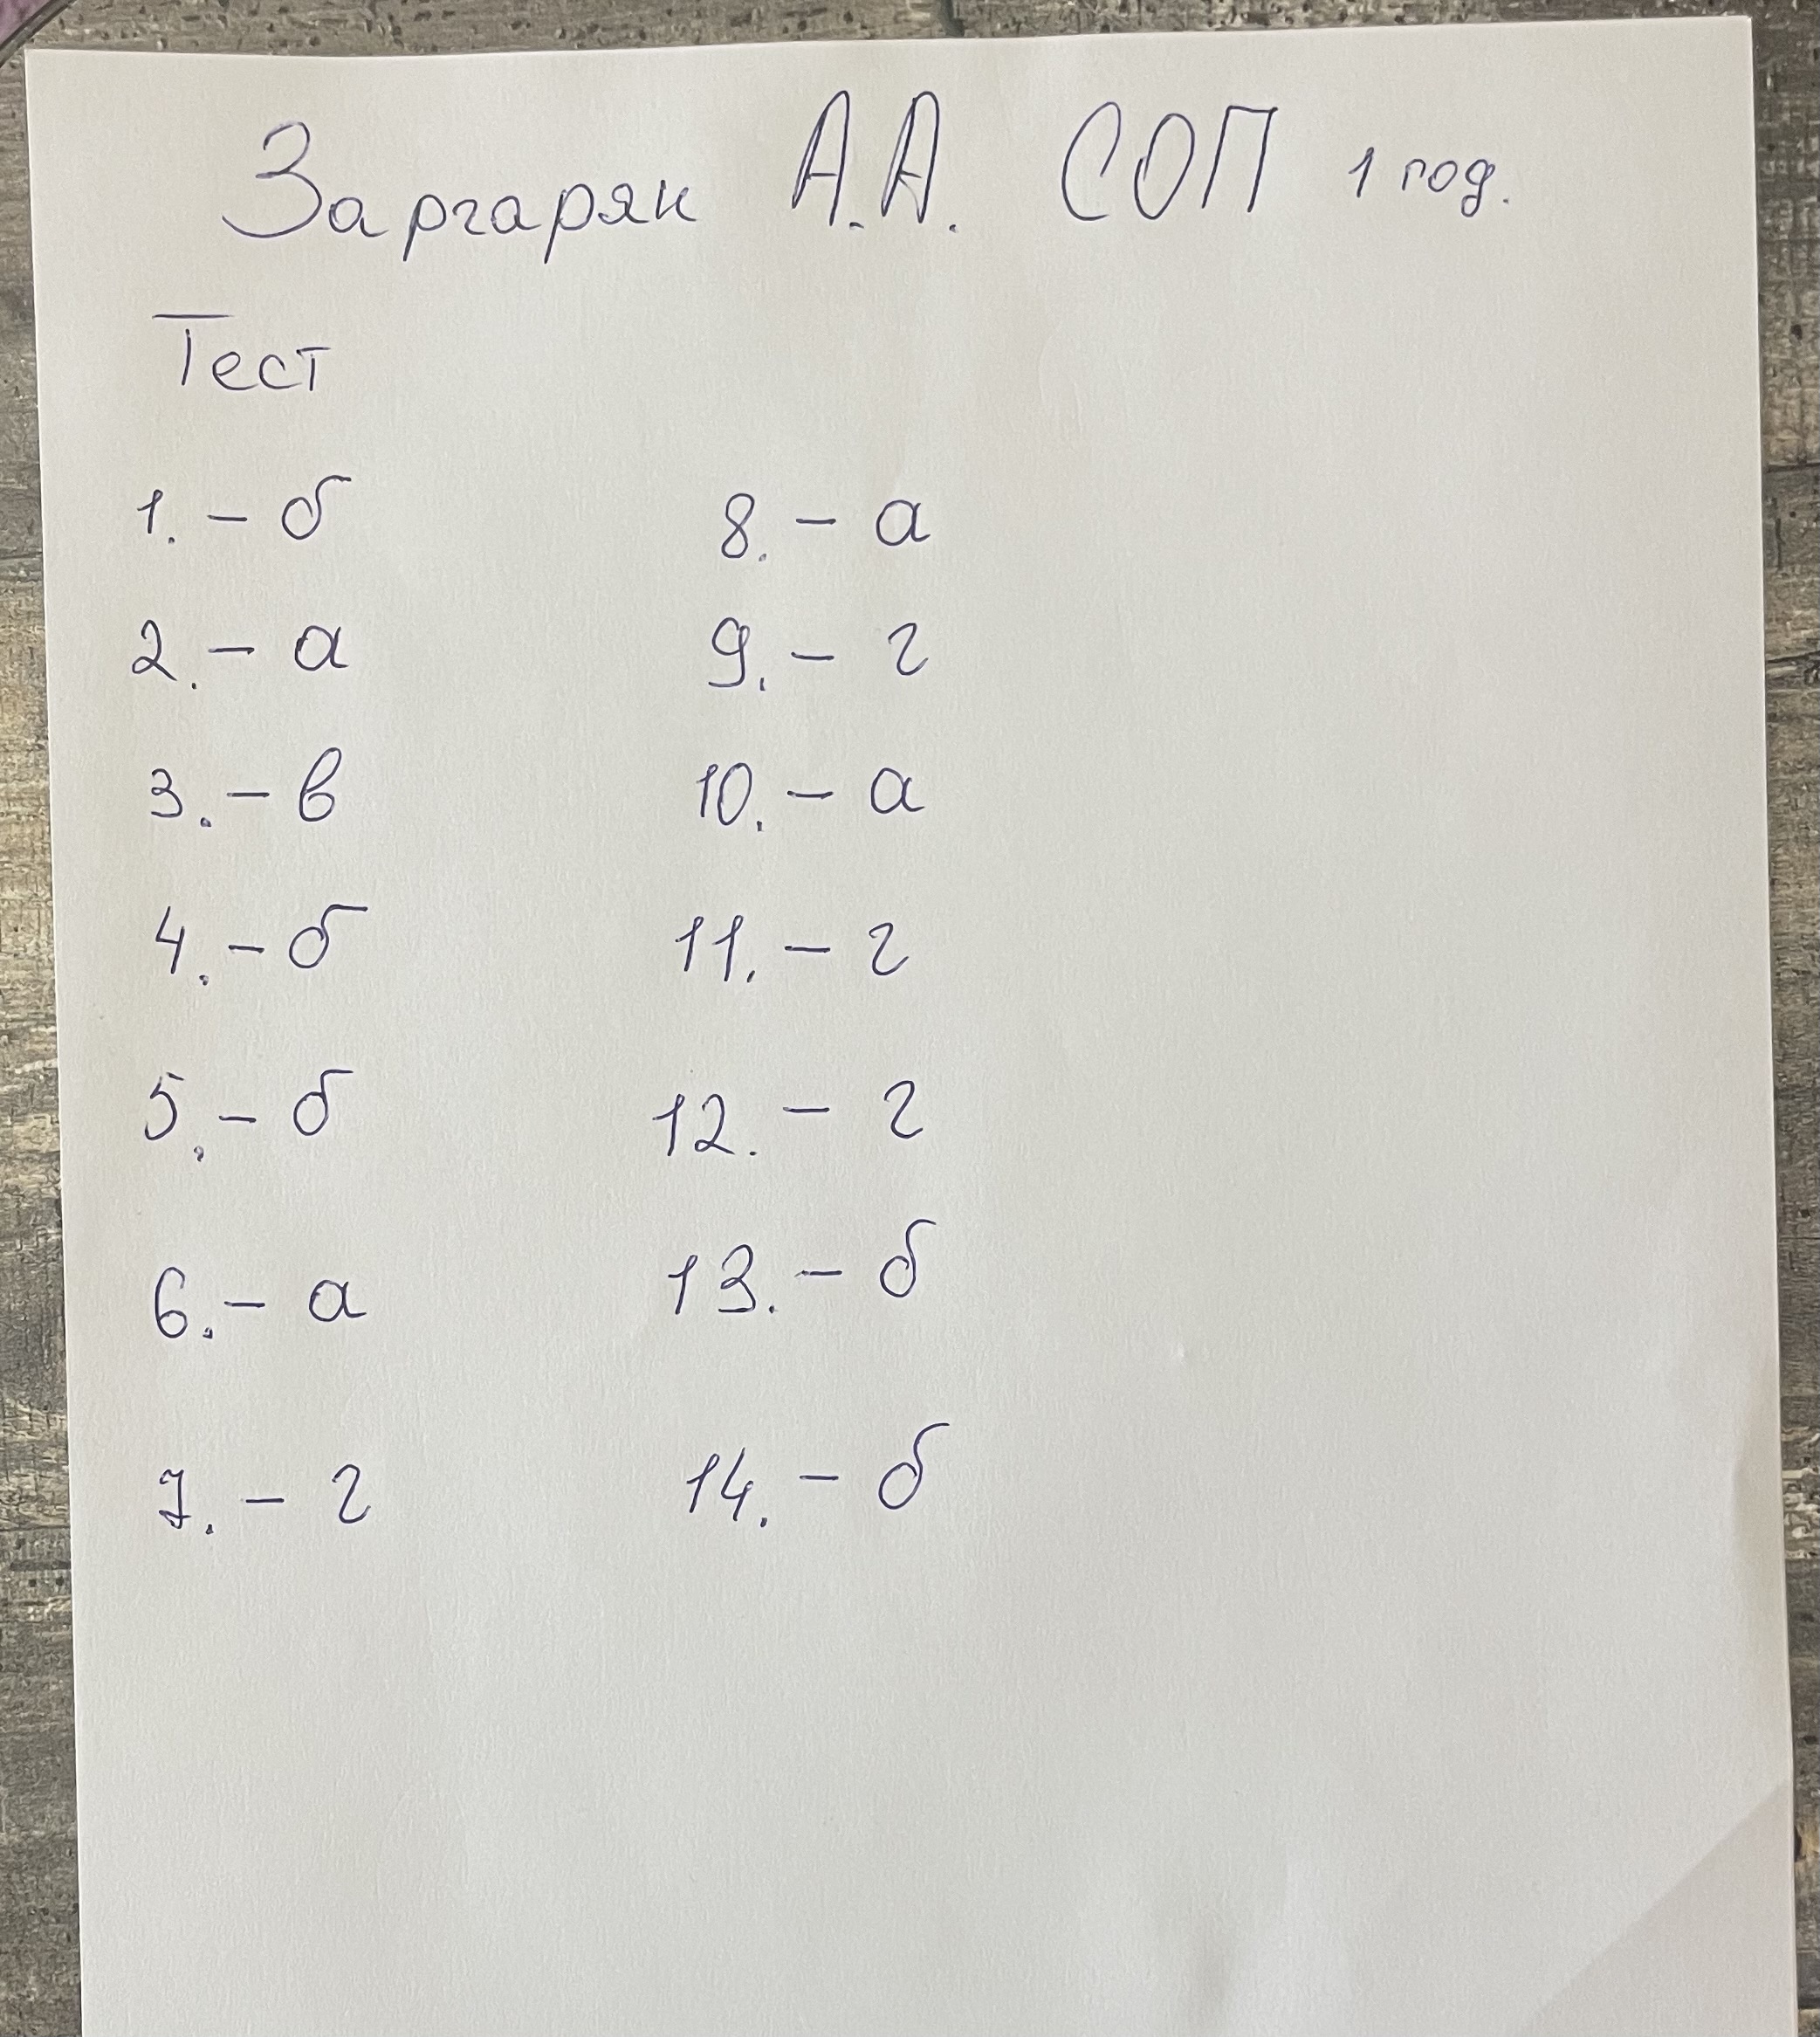 Заргарян А.А. СОП 1 год.
Тест
1. - б
2. - а
3. - в
4. - б
5. - б
6. - а
7. - г
8. - а
9. - г
10. - а
11. - г
12. - г
13. - б
14. - б